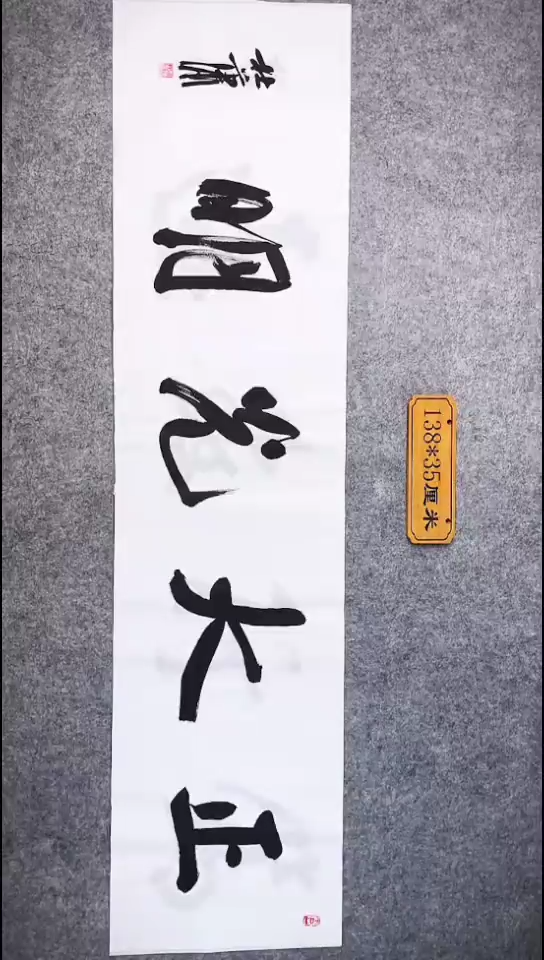 正大光明
138*35厘米